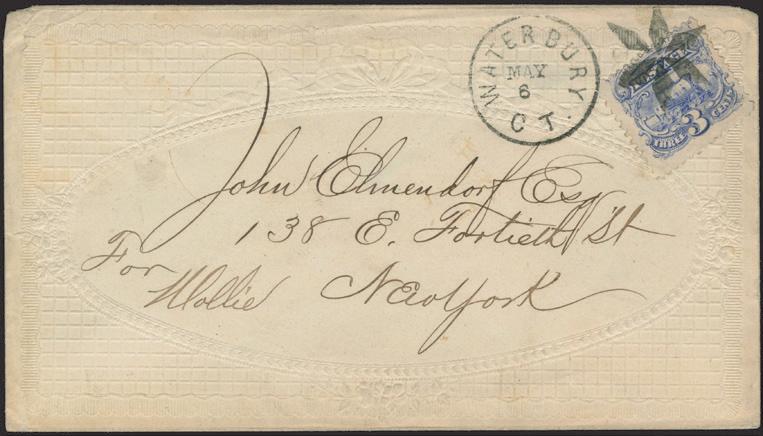 WATERBURY
MAY
6
CT.
POSTAGE
THREE 3 CENTS
John Elmendorf Esq
138 E. Fortieth St
New York
For
Mollie